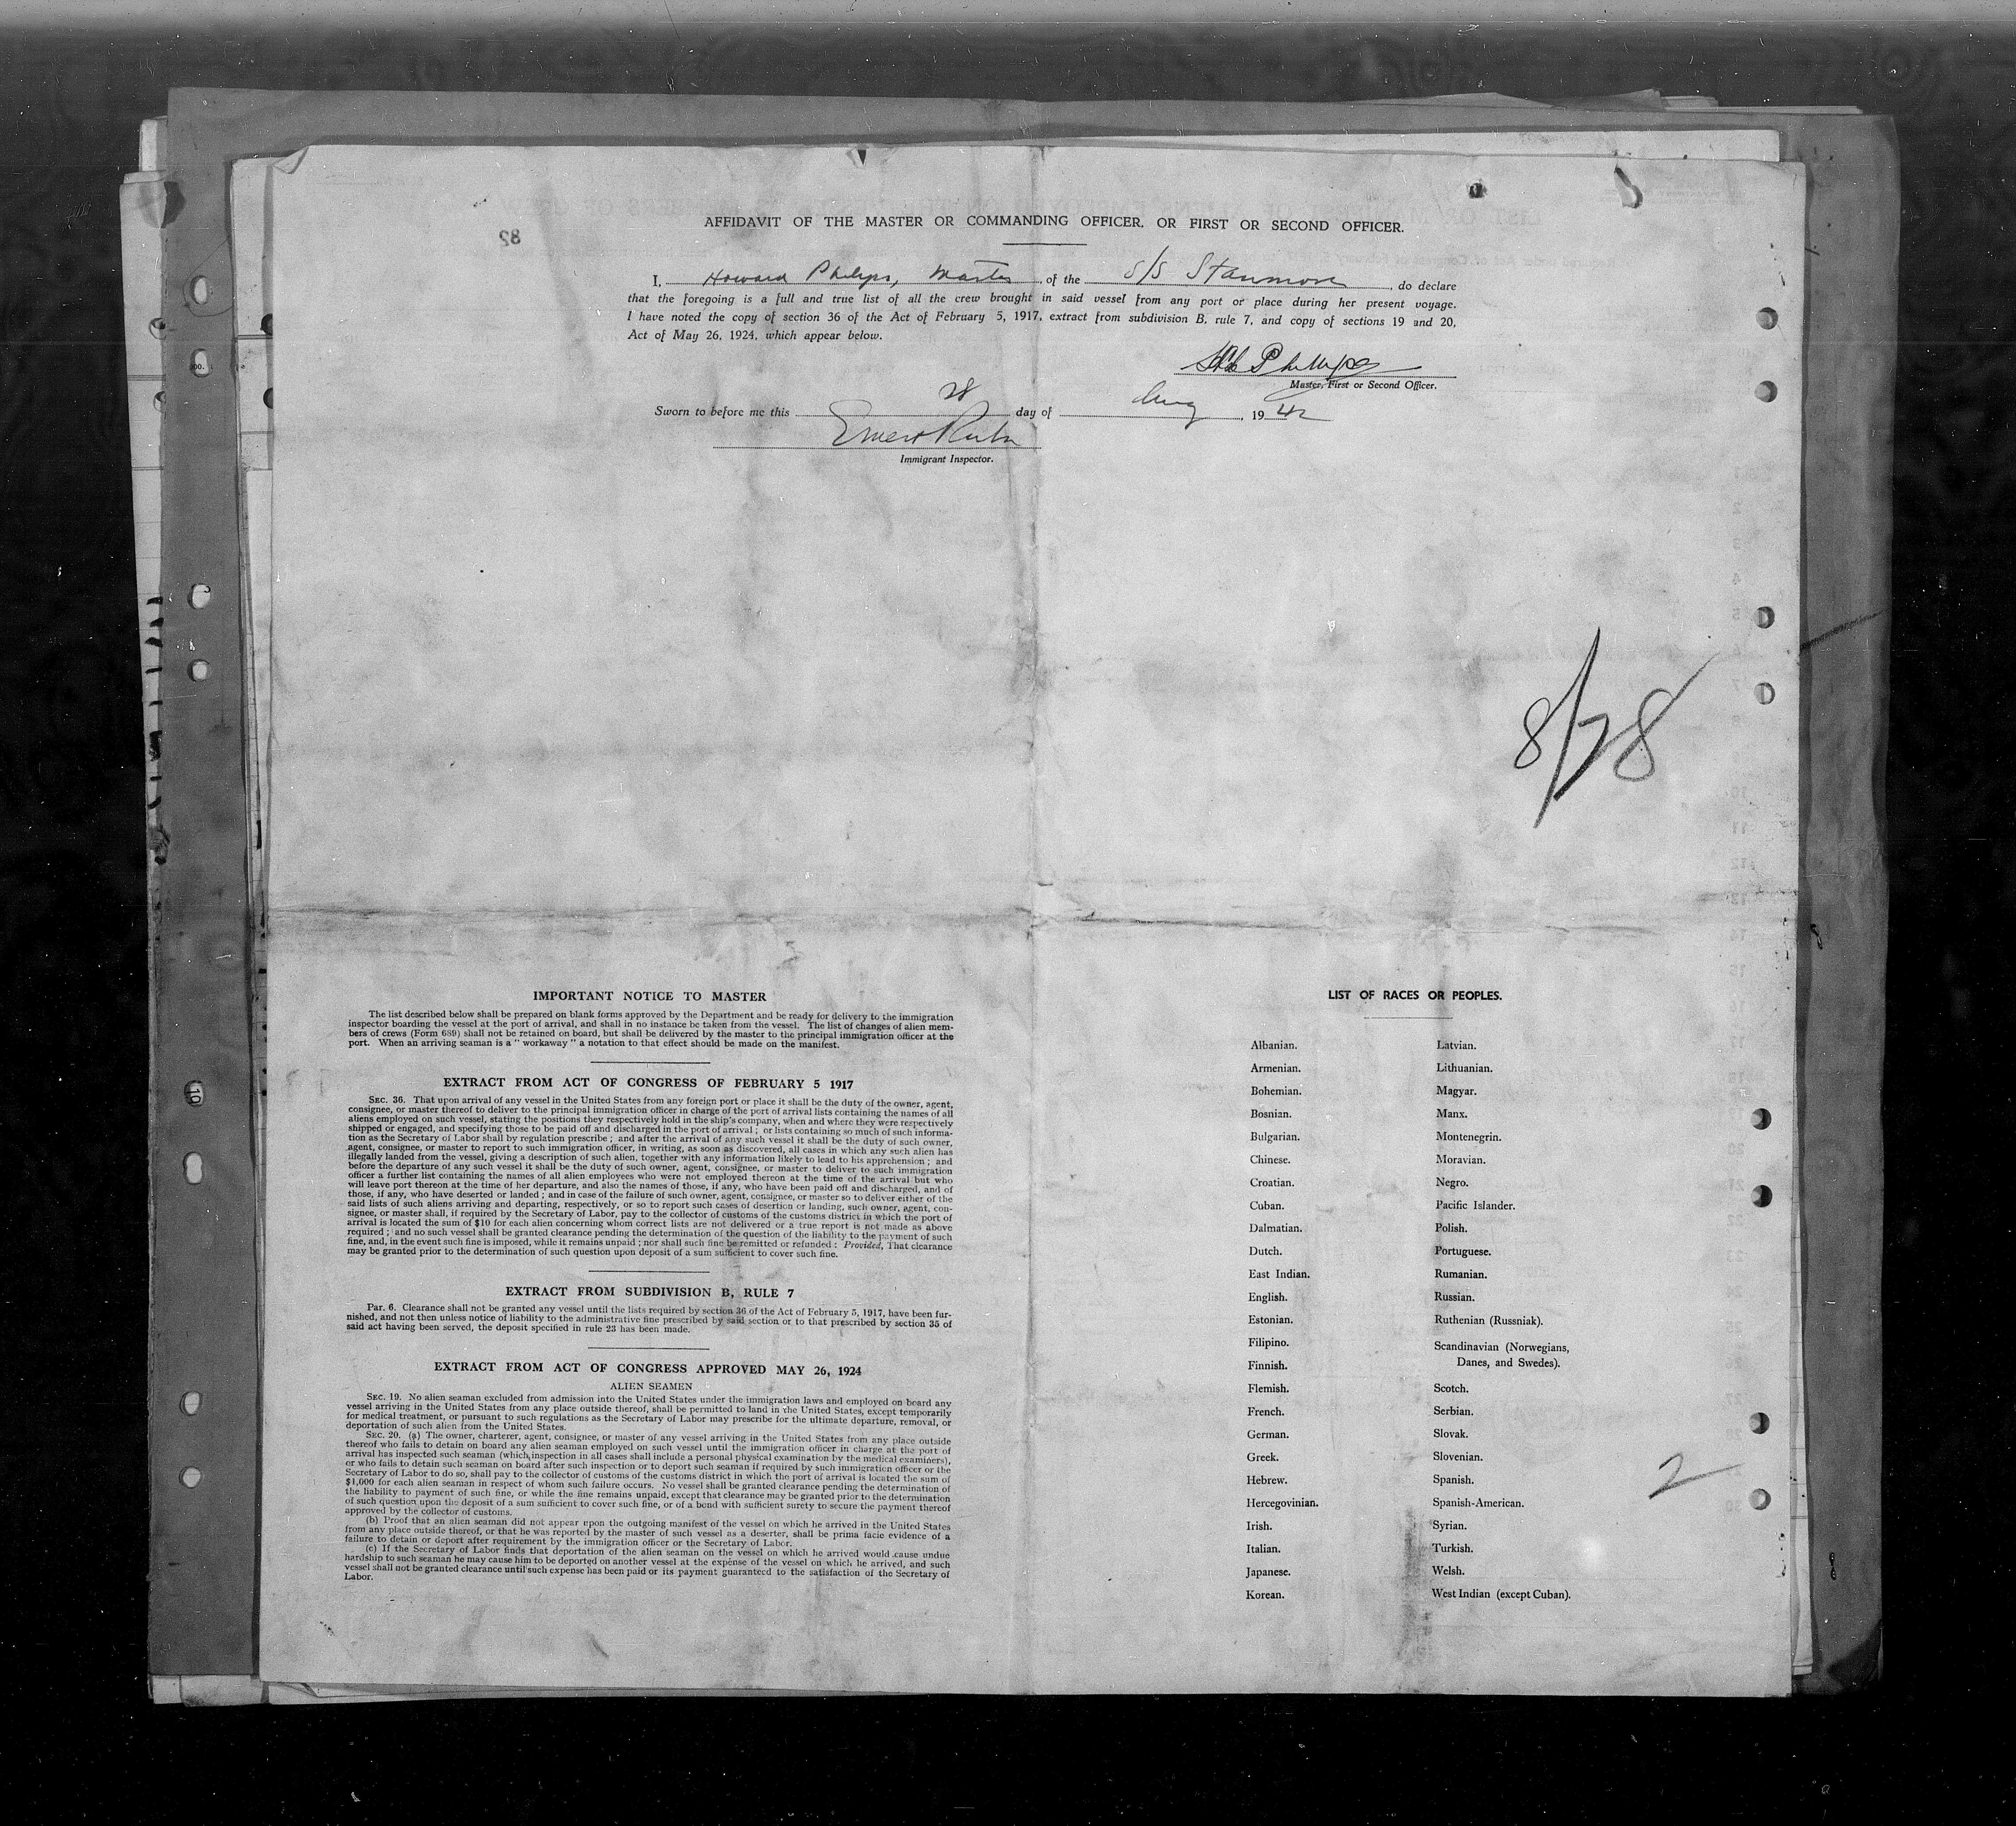 AFFIDAVIT OF THE MASTER OR COMMANDING OFFICER, OR FIRST OR SECOND OFFICER.
82
I, Howard Phelips, Master of the S/S Stanmore, do declare
that the foregoing is a full and true list of all the crew brought in said vessel from any port or place during her present voyage.
I have noted the copy of section 36 of the Act of February 5, 1917, extract from subdivision B, rule 7, and copy of sections 19 and 20,
Act of May 26, 1924, which appear below.
Phillips
Master, First or Second Officer.
Sworn to before me this 28 day of Aug, 1942
Immigrant Inspector.
8/28
IMPORTANT NOTICE TO MASTER
The list described below shall be prepared on blank forms approved by the Department and be ready for delivery to the immigration
inspector boarding the vessel at the port of arrival, and shall in no instance be taken from the vessel. The list of changes of alien mem-
bers of crews (Form 689) shall not be retained on board, but shall be delivered by the master to the principal immigration officer at the
port. When an arriving seaman is a " workaway " a notation to that effect should be made on the manifest.
EXTRACT FROM ACT OF CONGRESS OF FEBRUARY 5 1917
SEC. 36. That upon arrival of any vessel in the United States from any foreign port or place it shall be the duty of the owner, agent,
consignee, or master thereof to deliver to the principal immigration officer in charge of the port of arrival lists containing the names of all
aliens employed on such vessel, stating the positions they respectively hold in the ship's company, when and where they were respectively
shipped or engaged, and specifying those to be paid off and discharged in the port of arrival ; or lists containing so much of such informa-
tion as the Secretary of Labor shall by regulation prescribe ; and after the arrival of any such vessel it shall be the duty of such owner,
agent, consignee, or master to report to such immigration officer, in writing, as soon as discovered, all cases in which any such alien has
illegally landed from the vessel, giving a description of such alien, together with any information likely to lead to his apprehension ; and
before the departure of any such vessel it shall be the duty of such owner, agent, consignee, or master to deliver to such immigration
officer a further list containing the names of all alien employees who were not employed thereon at the time of the arrival but who
will leave port thereon at the time of her departure, and also the names of those, if any, who have been paid off and discharged, and of
those, if any, who have deserted or landed ; and in case of the failure of such owner, agent, consignee, or master so to deliver either of the
said lists of such aliens arriving and departing, respectively, or so to report such cases of desertion or landing, such owner, agent, con-
signee, or master shall, if required by the Secretary of Labor, pay to the collector of customs of the customs district in which the port of
arrival is located the sum of $10 for each alien concerning whom correct lists are not delivered or a true report is not made as above
required ; and no such vessel shall be granted clearance pending the determination of the question of the liability to the payment of such
fine, and, in the event such fine is imposed, while it remains unpaid ; nor shall such fine be remitted or refunded : Provided, That clearance
may be granted prior to the determination of such question upon deposit of a sum sufficient to cover such fine.
EXTRACT FROM SUBDIVISION B, RULE 7
Par. 6. Clearance shall not be granted any vessel until the lists required by section 36 of the Act of February 5, 1917, have been fur-
nished, and not then unless notice of liability to the administrative fine prescribed by said section or to that prescribed by section 35 of
said act having been served, the deposit specified in rule 23 has been made.
EXTRACT FROM ACT OF CONGRESS APPROVED MAY 26, 1924
ALIEN SEAMEN
SEC. 19. No alien seaman excluded from admission into the United States under the immigration laws and employed on board any
vessel arriving in the United States from any place outside thereof, shall be permitted to land in the United States, except temporarily
for medical treatment, or pursuant to such regulations as the Secretary of Labor may prescribe for the ultimate departure, removal, or
deportation of such alien from the United States.
SEC. 20. (a) The owner, charterer, agent, consignee, or master of any vessel arriving in the United States from any place outside
thereof who fails to detain on board any alien seaman employed on such vessel until the immigration officer in charge at the port of
arrival has inspected such seaman (which inspection in all cases shall include a personal physical examination by the medical examiners),
or who fails to detain such seaman on board after such inspection or to deport such seaman if required by such immigration officer or the
Secretary of Labor to do so, shall pay to the collector of customs of the customs district in which the port of arrival is located the sum of
$1,000 for each alien seaman in respect of whom such failure occurs. No vessel shall be granted clearance pending the determination of
the liability to payment of such fine, or while the fine remains unpaid, except that clearance may be granted prior to the determination
of such question upon the deposit of a sum sufficient to cover such fine, or of a bond with sufficient surety to secure the payment thereof
approved by the collector of customs.
(b) Proof that an alien seaman did not appear upon the outgoing manifest of the vessel on which he arrived in the United States
from any place outside thereof, or that he was reported by the master of such vessel as a deserter, shall be prima facie evidence of a
failure to detain or deport after requirement by the immigration officer or the Secretary of Labor.
(c) If the Secretary of Labor finds that deportation of the alien seaman on the vessel on which he arrived would cause undue
hardship to such seaman he may cause him to be deported on another vessel at the expense of the vessel on which he arrived, and such
vessel shall not be granted clearance until such expense has been paid or its payment guaranteed to the satisfaction of the Secretary of
Labor.
LIST OF RACES OR PEOPLES.
Albanian.
Armenian.
Bohemian.
Bosnian.
Bulgarian.
Chinese.
Croatian.
Cuban.
Dalmatian.
Dutch.
East Indian.
English.
Estonian.
Filipino.
Finnish.
Flemish.
French.
German.
Greek.
Hebrew.
Hercegovinian.
Irish.
Italian.
Japanese.
Korean.
Latvian.
Lithuanian.
Magyar.
Manx.
Montenegrin.
Moravian.
Negro.
Pacific Islander.
Polish.
Portuguese.
Rumanian.
Russian.
Ruthenian (Russniak).
Scandinavian (Norwegians,
Danes, and Swedes).
Scotch.
Serbian.
Slovak.
Slovenian.
Spanish.
Spanish-American.
Syrian.
Turkish.
Welsh.
West Indian (except Cuban).
2